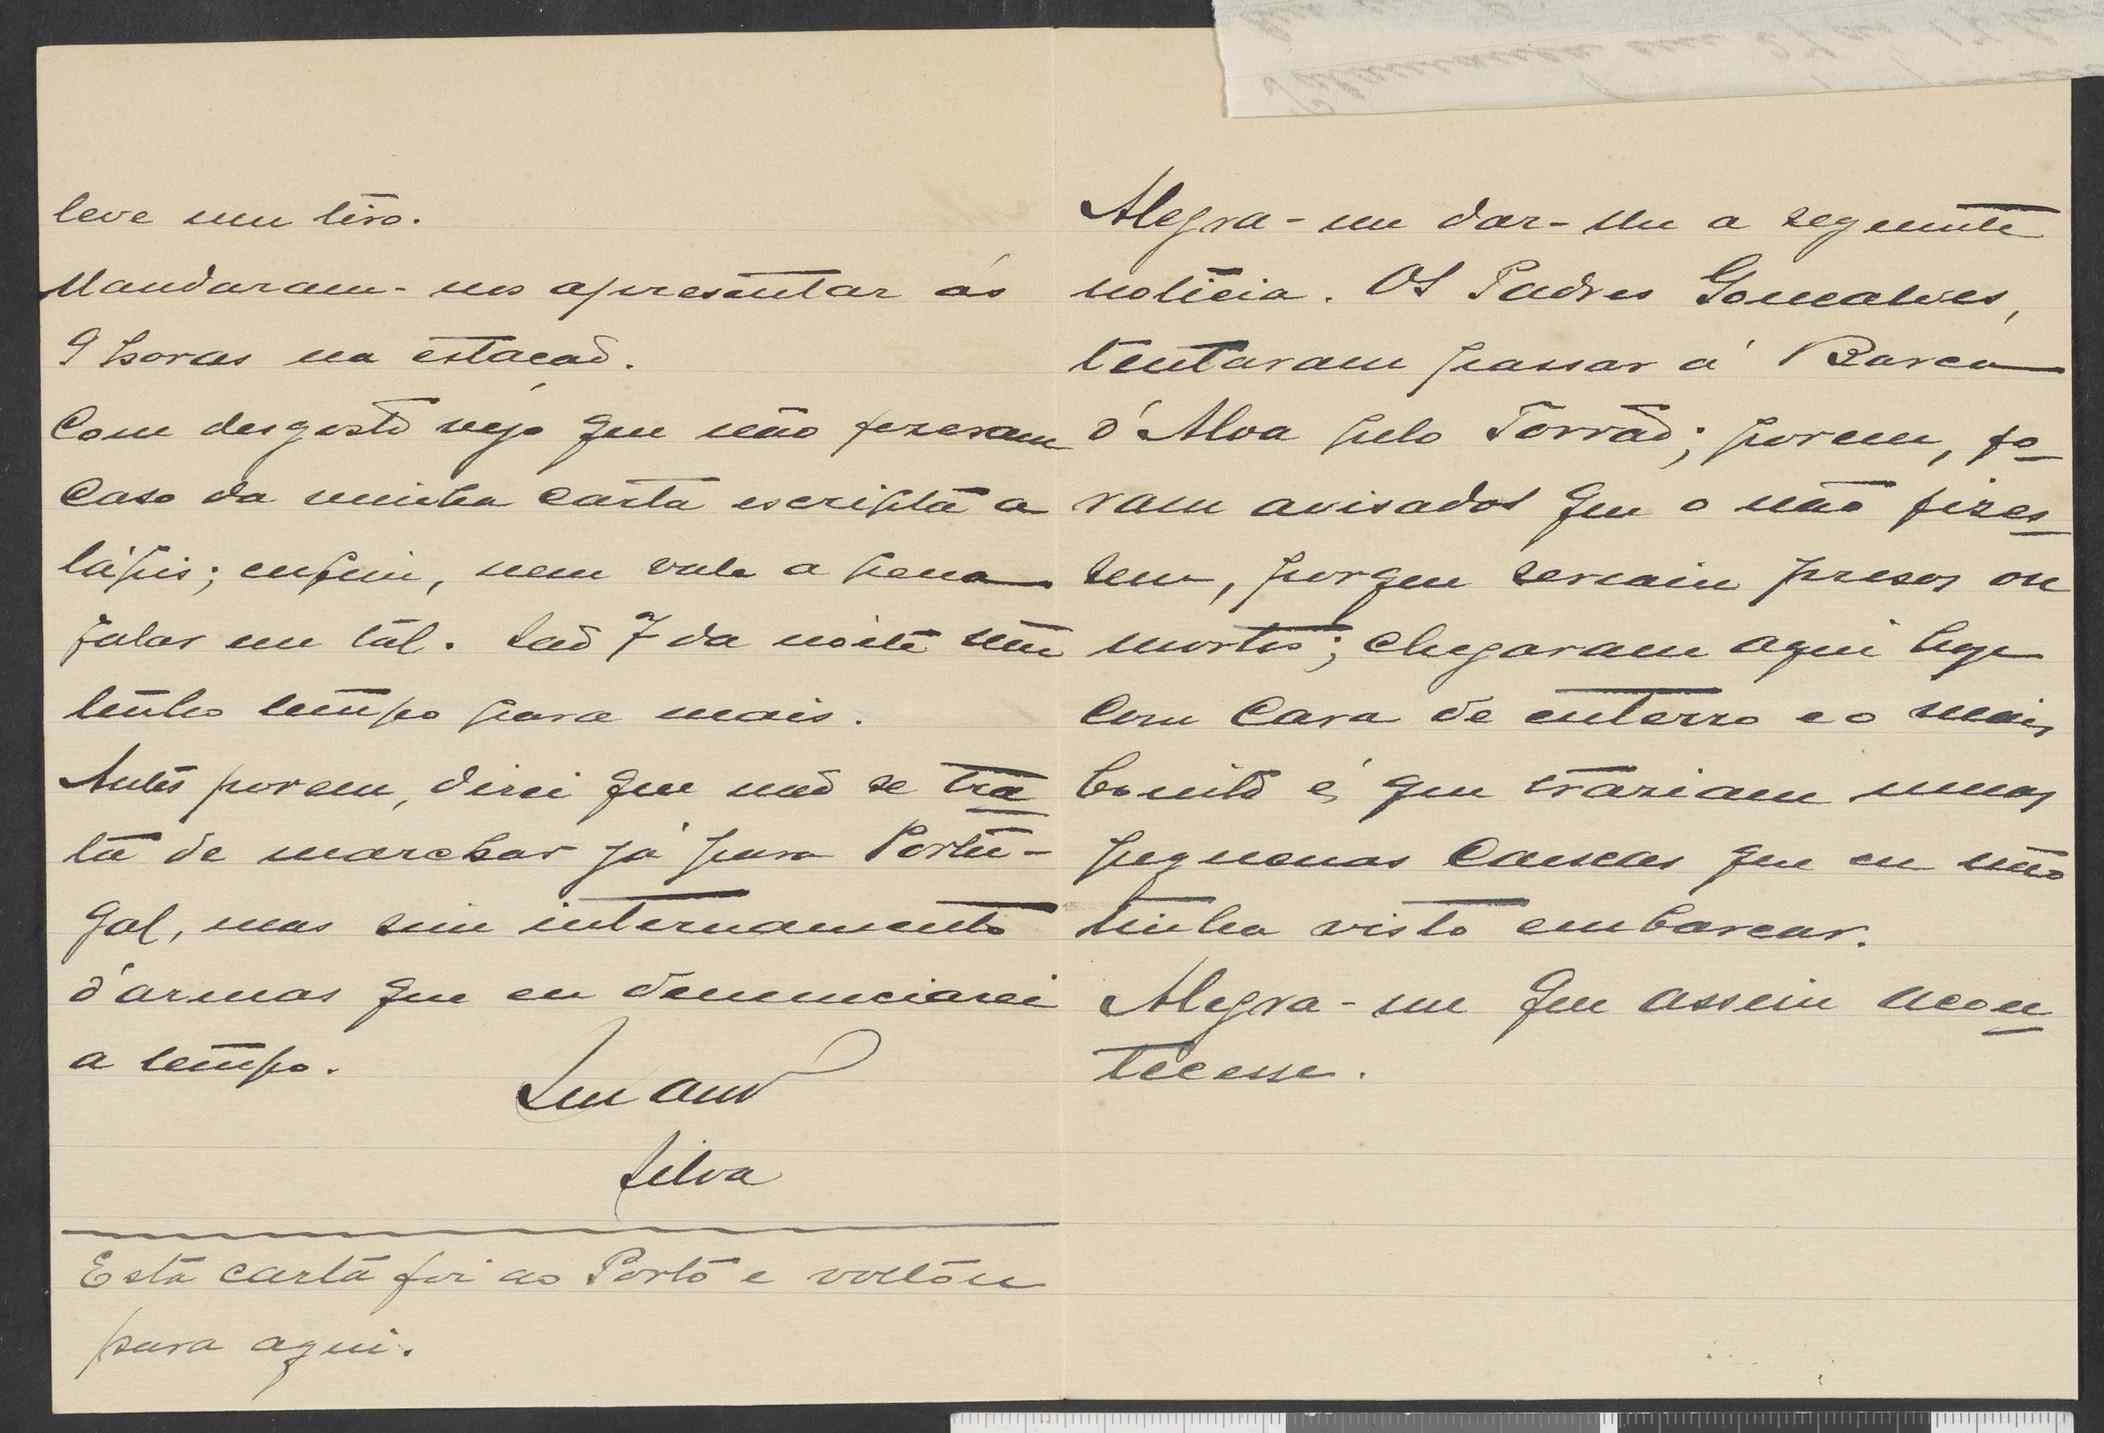 leve um tiro.
Mandaram-nos apresentar ás
9 horas na estacaõ.
Com desgosto vejo que não fizeram
caso da minha carta escripta a
lápis; enfim, nem vale a pena
falar em tál. Saõ 7 da noite sem
tenho tempo para mais.
Antes porem, direi que naõ se tra
ta de marchar já para Portu-
gal, mas sim internamento
d'armas que eu denunciarei
a tempo.
Seu amº
Silva
Esta carta foi ao Porto e voltou
para aqui.
Alegra-me dar-lhe a seguinte
noticia. Os Padres Goncalves,
tentaram passar á Barca
d'Alva pelo Torrão; porem, fo-
ram avisados que o não fizes
sem, porque seriam presos ou
mortos; chegaram aqui hoje
com cara de enterro e o mais
bonito é, que traziam umas
pequenas caixas que eu não
tinha visto embarcar.
Alegra-me que assim acon
tecesse.